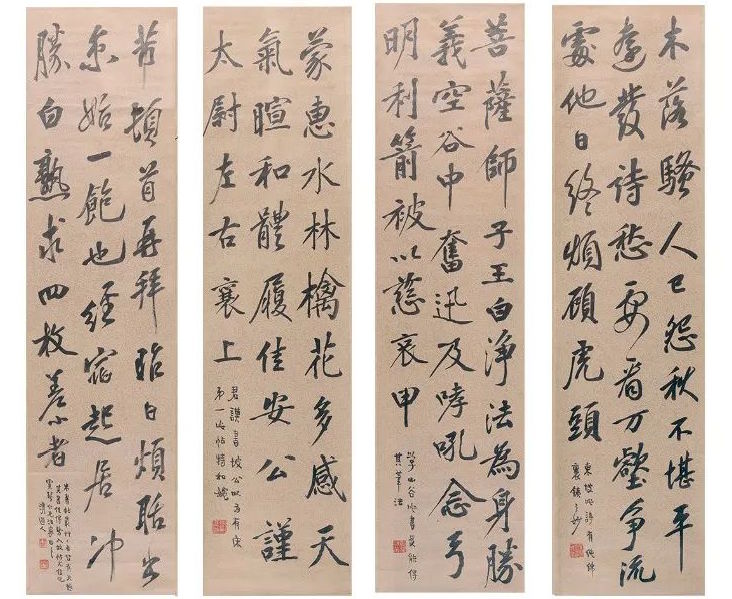 木落騷人已怨秋不堪平
遠發詩愁要看万壑争流
處他日終煩顧虎頭
東坡此詩有他
菩薩師子王白淨法為身勝
義空谷中奮迅及哮吼念弓
明利箭被以慈哀甲
學山谷此書最能得
其筆法
蒙惠水林檎花多感天
氣暄和體履佳安公謹
太尉左右襄上
君謨書坡公以為有宋
第一此帖特和婉
芾頓首再拜昨日煩聒
始一飽也經宿起居冲
勝白熟求四枚差小者